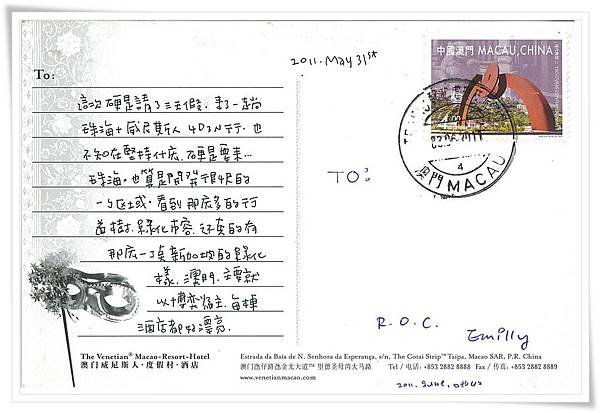 2011. May 31st
中國澳門 MACAU, CHINA
4.00
澳門 MACAU
4
To:
這次硬是請了三天假,來了一趟
珠海+威尼斯人 4D3N行,也
不知在堅持什庅,硬是要來…
珠海,也算是開發很早的
一個區域,看到那庅多的行
道樹,綠化市容,还真的有
那庅一丁点新加坡的綠化
樣,澳門,主要就
以博弈為主,每棟
酒店都好漂亮.
TO:
R.O.C.
Emilly
The Venetian® Macao-Resort-Hotel
澳门威尼斯人·度假村·酒店
Estrada da Baía de N. Senhora da Esperança, s/n, The Cotai Strip™ Taipa, Macao SAR, P.R. China
澳门氹仔路氹金光大道™ 里德圣母湾大马路 Tel / 电话: +853 2882 8888 Fax / 传真: +853 2882 8889
www.venetianmacao.com
2011. June.